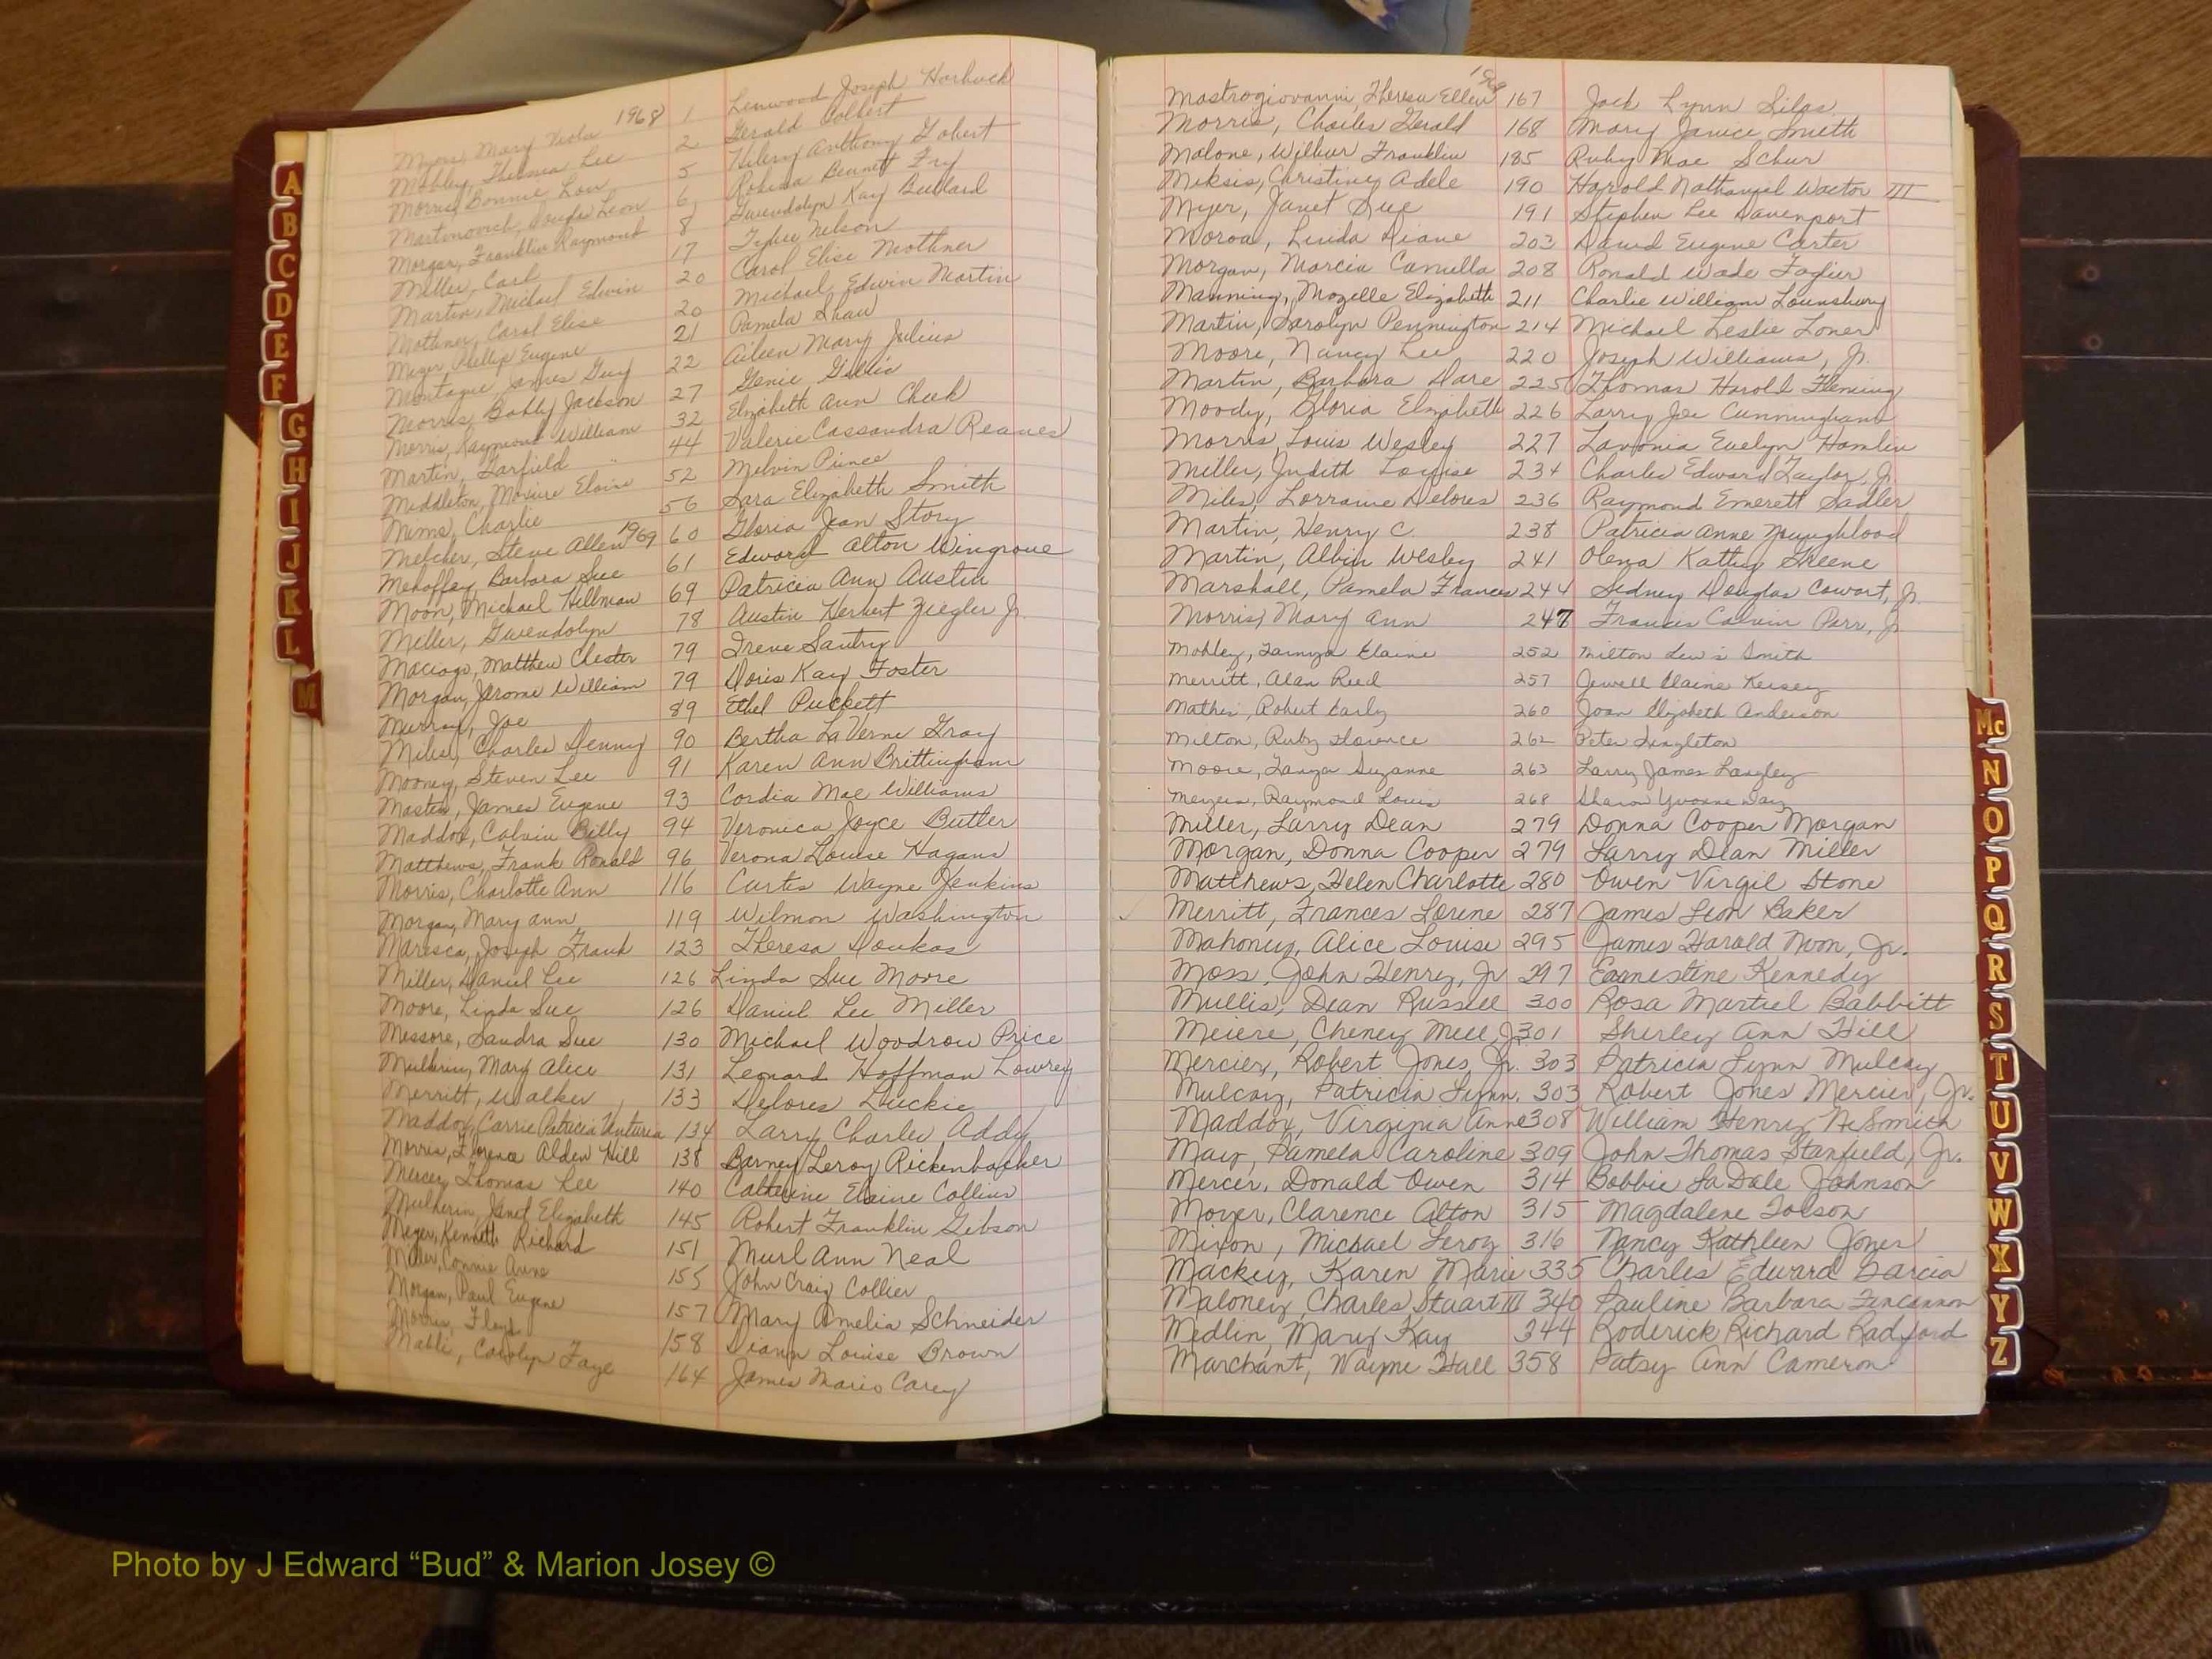 1968
Myers, Mary Viola 1 Lenwood Joseph Harbuck
Mobley, Thelma Lee 2 Gerald Colbert
Morris, Bonnie Lou 5 Hilery Anthony Gobert
Martinovich, Douglas Leon 6 Robena Bennett Fry
Morgan, Franklin Raymond 8 Gwendolyn Kay Bullard
Miller, Carl 17 Nelson
Martin, Michael Edwin 20 Carol Elise Mothner
Mothner, Carol Elise 20 Michael Edwin Martin
Meyer, Phillip Eugene 21 Pamela Shaw
Montague, James Guy 22 Aileen Mary Julius
Morris, Bobby Jackson 27 Genie
Morris, Raymond William 32 Elizabeth Ann Cheek
Martin, Garfield 44 Valerie Cassandra Reaves
Middleton, Maxine Elaine 52 Melvin Prince
Mims, Charlie 56 Sara Elizabeth Smith
Melcher, Steve Allen 1969 60 Gloria Jean Story
Mehaffey, Barbara Sue 61 Edward Alton Wingrove
Moon, Michael Hillman 69 Patricia Ann Austin
Miller, Gwendolyn 78 Austin Herbert Ziegler Jr.
Maciogo, Matthew Chester 79 Irene Santry
Morgan, Jerome William 79 Doris Kay Foster
Murray, Joe 89 Ethel Puckett
Miles, Charles Denny 90 Bertha LaVerne Gray
Mooney, Steven Lee 91 Karen Ann Brittingham
Masten, James Eugene 93 Cordia Mae Williams
Maddox, Calvin Billy 94 Veronica Joyce Butler
Matthews, Frank Ronald 96 Verona Louise Hagans
Morris, Charlotte Ann 116 Curtis Wayne Jenkins
Morgan, Mary Ann 119 Wilmon Washington
Maresca, Joseph Frank 123 Theresa Doukas
Miller, Daniel Lee 126 Linda Sue Moore
Moore, Linda Sue 126 Daniel Lee Miller
Messore, Sandra Sue 130 Michael Woodrow Price
Mulherin, Mary Alice 131 Leonard Hoffman Lowrey
Merritt, Walker 133 Delores Luckie
Maddox, Carrie Patricia Venturia 134 Larry Charles Addy
Morris, Florence Alden Hill 138 Barney Leroy Rickenbacker
Mercer, Thomas Lee 140 Catherine Elaine Collins
Mulherin, Janet Elizabeth 145 Robert Franklin Gibson
Meyer, Kenneth Richard 151 Murl Ann Neal
Miller, Connie Anne 155 John Craig Collier
Morgan, Paul Eugene 157 Mary Amelia Schneider
Morris, Floyd 158 Diann Louise Brown
Mabli, Carolyn Faye 164 James Mario Carey
Mastrogiovanni, Theresa Ellen 167 Jack Lynn Silas
Morris, Charles Gerald 168 Mary Janice Smith
Malone, Wilbur Franklin 185 Ruby Mae Schur
Miksis, Christine Adele 190 Harold Nathaniel III
Myer, Janet Sue 191 Stephen Lee Davenport
Moroa, Linda Diane 203 David Eugene Carter
Morgan, Marcia Camilla 208 Ronald Wade Faglier
Manning, Mozelle Elizabeth 211 Charlie William Lounsbury
Martin, Carolyn Pennington 214 Michael Leslie Loner
Moore, Nancy Lee 220 Joseph Williams, Jr.
Martin, Barbara Dare 225 Thomas Harold Fleming
Moody, Gloria Elizabeth 226 Larry Joe Cunningham
Morris, Louis Wesley 227 Lavonia Evelyn Hamlin
Miller, Judith Louise 234 Charles Edward Taylor, Jr.
Miles, Lorraine Delores 236 Raymond Emerett Sadler
Martin, Henry C. 238 Patricia Anne Youngblood
Martin, Albin Wesley 241 Olena Kathy Greene
Marshall, Pamela Frances 244 Sidney Douglas Cowart, Jr.
Morris, Mary Ann 247 Frances Calvin Parr, Jr
Mobley, Tamya Elaine 252 Milton Lewis Smith
Merritt, Alan Reed 257 Jewell Elaine Kersey
Mathis, Robert Early 260 Joan Elizabeth Anderson
Milton, Ruby Florence 262 Peter Singleton
Moore, Tanya Suzanne 263 Larry James Langley
Meyers, Raymond Louis 268 Sharon Yvonne Day
Miller, Larry Dean 279 Donna Cooper Morgan
Morgan, Donna Cooper 279 Larry Dean Miller
Matthews, Helen Charlotte 280 Owen Virgil Stone
Merritt, Frances Lorene 287 James Leon Baker
Mahoney, Alice Louise 295 James Harold Moon, Jr.
Moss, John Henry, Jr 297 Earnestine Kennedy
Mullis, Dean Russell 300 Rosa Martiel Babbitt
Meiere, Cheney Mell, Jr 301 Shirley Ann Hill
Mercier, Robert Jones, Jr. 303 Patricia Lynn Mulcay
Mulcay, Patricia Lynn. 303 Robert Jones Mercier, Jr.
Maddox, Virginia Anne 308 William Henry NeSmith
May, Pamela Caroline 309 John Thomas Stanfield, Jr.
Mercer, Donald Owen 314 Bobbie LaDale Johnson
Moyer, Clarence Alton 315 Magdalene Tolson
Mixon, Michael Leroy 316 Nancy Kathleen Jones
Mackey, Karen Marie 335 Charles Edward Garcia
Maloney, Charles Stuart III 340 Pauline Barbara Fincannon
Medlin, Mary Kay 344 Roderick Richard Radford
Marchant, Wayne Hall 358 Patsy Ann Cameron
A
B
C
D
E
F
G
H
I
J
K
L
M
Mc
N
O
P
Q
R
S
T
U
V
W
X
Y
Z
Photo by J Edward “Bud” & Marion Josey ©